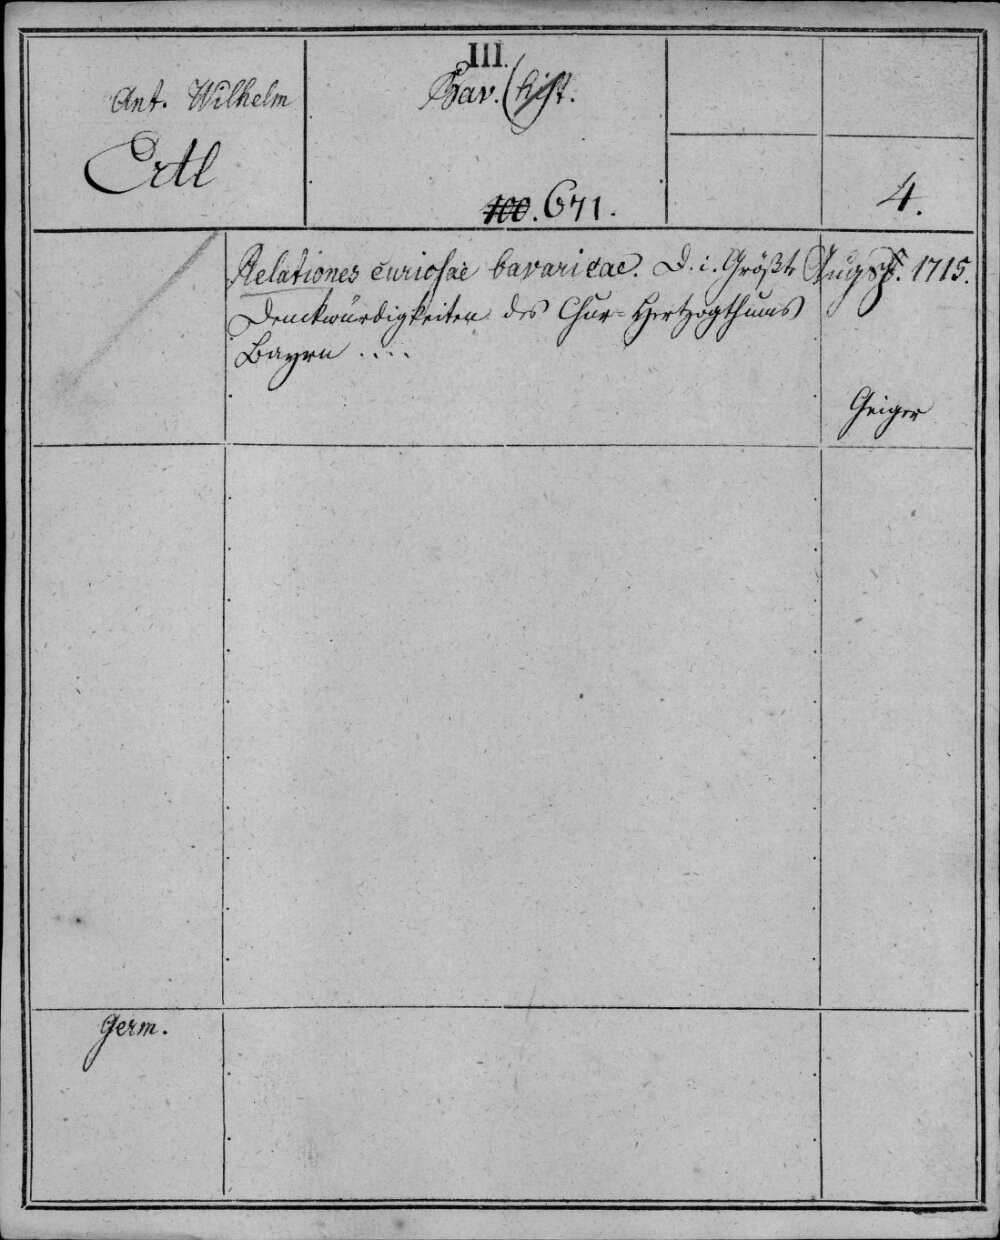 Ant. Wilhelm
Ertl
III.
Bav. (hist.
100. 671.
4.
Relationes curiosae bavaricae. D. i. Größte
Denckwürdigkeiten des Chur-Hertzogthums
Bayrn ....
Augsp. 1715.
Geiger
Germ.